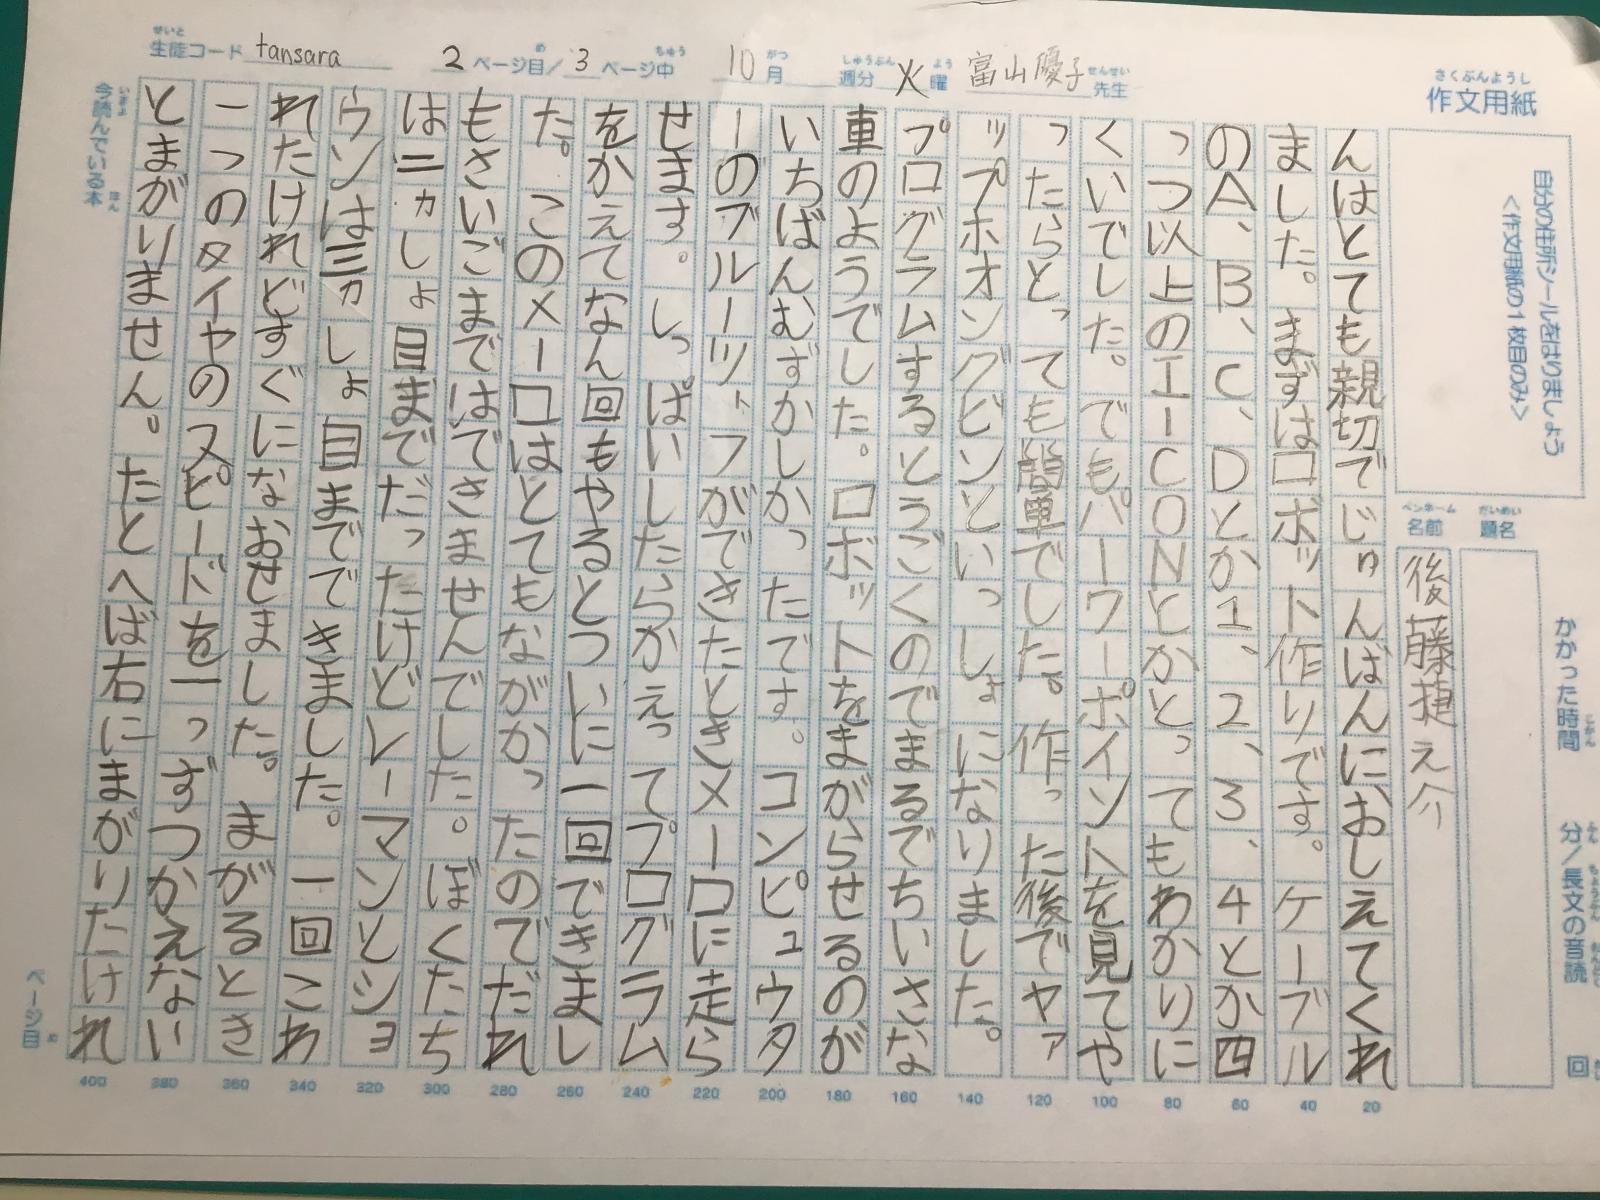 生徒コード tansara 2 ページ目/3 ページ中 10月 週分 火曜 富山優子先生
作文用紙
自分の住所シールをはりましょう
<作文用紙の1枚目のみ>
題名
名前 後藤捷え介
かかった時間 分/長文の音読 回
んはとても親切でじゅんばんにおしえてくれ
ました。まずはロボット作りです。ケーブル
のA、B、C、Dとか1、2、3、4とか四
っつ以上のエーCONとかとってもわかりに
くいでした。でもパーワーポイントを見てや
ったらとっても簡単でした。作った後でヤァ
ップホオングビンといっしょになりました。
プログラムするとうごくのでまるでちいさな
車のようでした。ロボットをまがらせるのが
いちばんむずかしかったです。コンピュウタ
ーのブルーツトフができたときメーロに走ら
せます。しっぱいしたらかえってプログラム
をかえてなん回もやるとついに一回できまし
た。このメーロはとてもながかったのでだれ
もさいごまではできませんでした。ぼくたち
はニカしょ目までだったけどレーマンとショ
ウンは三カしょ目まででできました。一回こわ
れたけれどすぐになおせました。まがるとき
一つのタイヤのスピードを一っずつかえない
とまがりません。たとへば右にまがりたけれ
20 40 60 80 100 120 140 160 180 200 220 240 260 280 300 320 340 360 380 400
今読んでいる本
ページ目